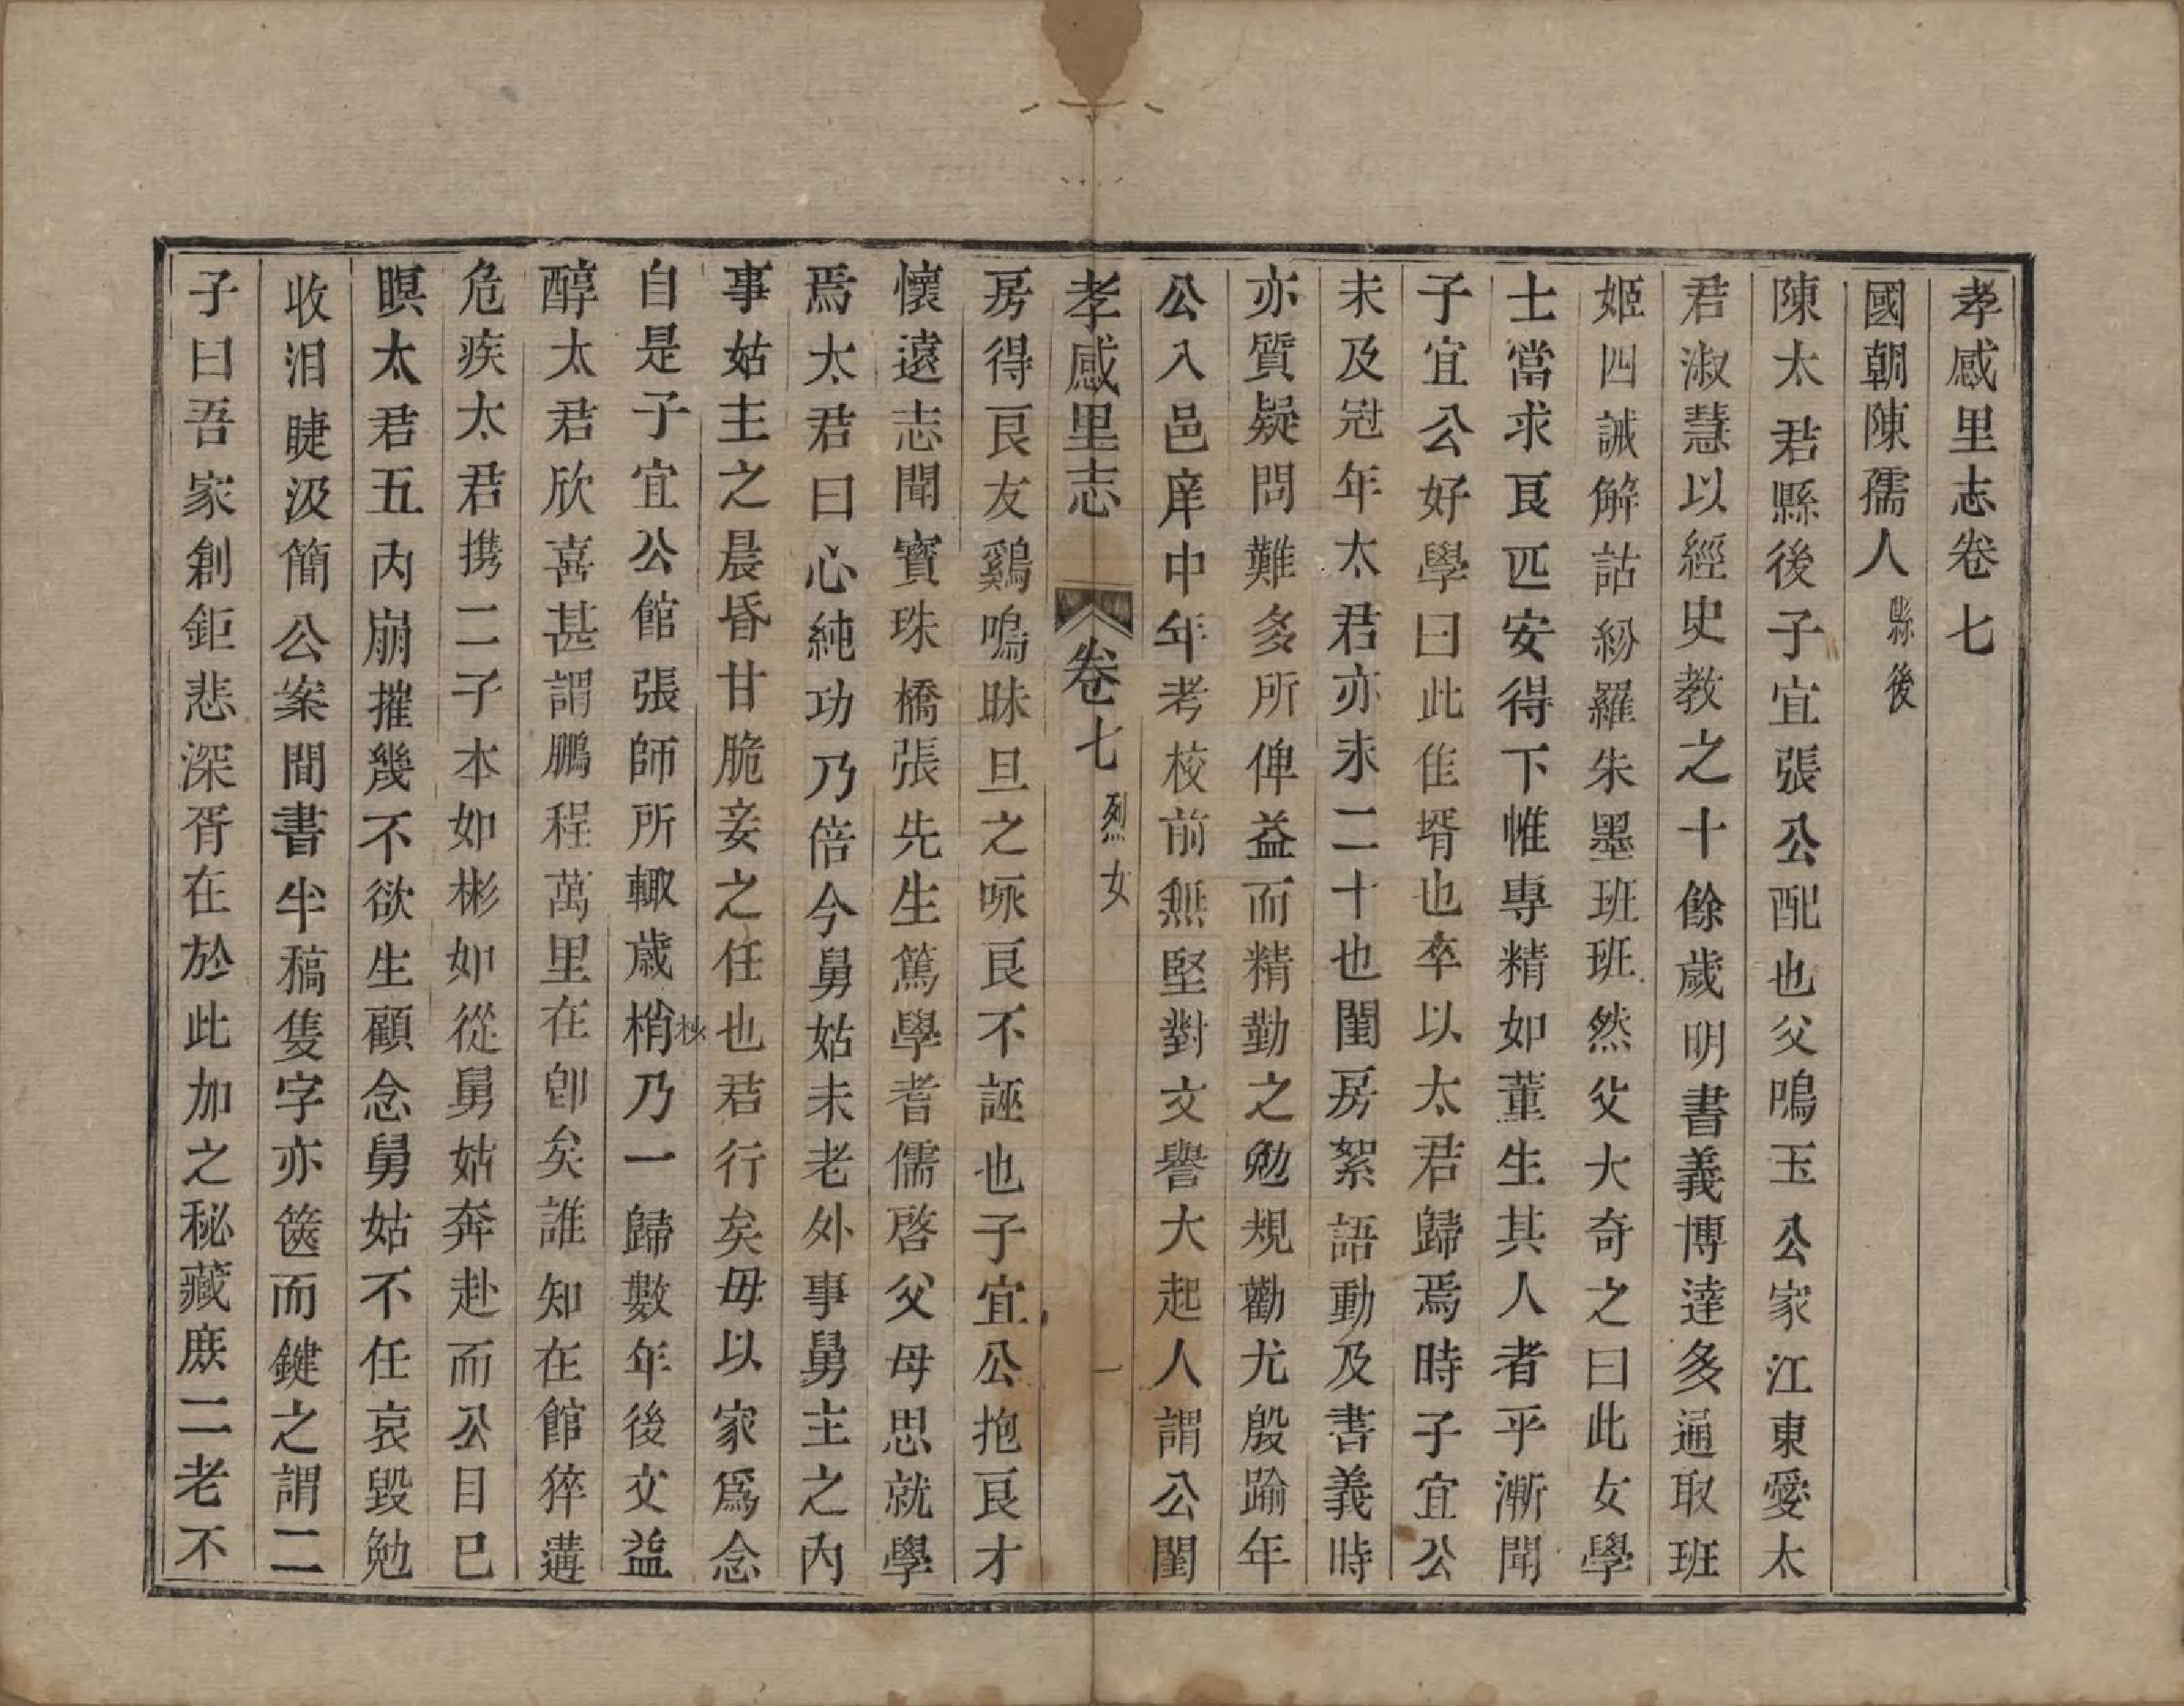 孝感里志卷七
國朝陳孺人縣後
陳太君縣後子宜張公配也父鳴玉公家江東愛太
君淑慧以經史教之十餘歲明書義博達多通取班
姬四誡解詁紛羅朱墨班班然父大奇之曰此女學
士當求良匹安得下帷專精如董生其人者乎漸聞
子宜公好學曰此佳壻也卒以太君歸焉時子宜公
未及冠年太君亦未二十也閨房絮語動及書義時
亦質疑問難多所俾益而精勤之勉規勸尤殷踰年
公入邑庠中年考校前無堅對文譽大起人謂公閨
孝感里志 卷七 烈女 一
房得良友鷄鳴昧旦之咏良不誣也子宜公抱良才
懷遠志聞寶珠橋張先生篤學耆儒啓父母思就學
焉太君曰心純功乃倍今舅姑未老外事舅主之內
事姑主之晨昏甘脆妾之任也君行矣毋以家爲念
自是子宜公館張師所輙歲梢乃一歸數年後文益
秋
醇太君欣喜甚謂鵬程萬里在卽矣誰知在館猝遘
危疾太君携二子本如彬如從舅姑奔赴而公目已
瞑太君五內崩摧幾不欲生顧念舅姑不任哀毀勉
收泪睫汲簡公案間書半稿隻字亦篋而鍵之謂二
子曰吾家創鉅悲深胥在於此加之秘藏庶二老不